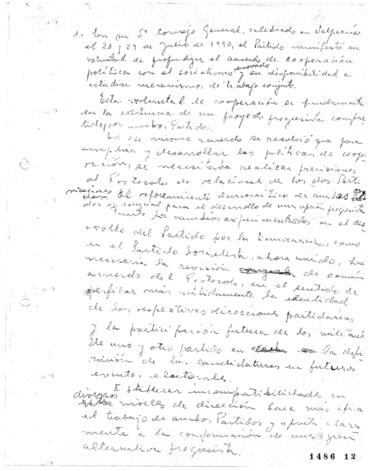 1. Con su 5° Consejo General, celebrado en Valparaíso
el 28 y 29 de Julio de 1990, el Partido manifestó su
voluntad de profundizar el acuerdo de cooperación
política con el socialismo y su disponibilidad a
estudiar mecanismos de trabajo conjunto.
Esta voluntad de cooperación se fundamenta
en la existencia de un proyecto progresista
por ambos Partidos.
En ese mismo acuerdo se resolvió que para
ampliar y desarrollar las políticas de coope
ración, se necesitaba realizar precisiones
al Protocolo de relaciones de los dos Parti
El reforzamiento democrático de ambos
es esencial para el desarrollo de una opción progresista
los cambios experimentados en el desa
rrollo del Partido por la Democracia, como
en el Partido Socialista, ahora unido, hace
necesaria la revisión de común
acuerdo del Protocolo, en el sentido de
perfilar más nítidamente la identidad
de las respectivas direcciones partidarias
y la participación futura de los militantes
de uno y otro partido en la defi
nición de las candidaturas en futuros
eventos electorales.
Establecer incompatibilidades en
diversos niveles de dirección hace más
el trabajo de ambos Partidos y apunta clara
mente a la conformación de una gran
alternativa progresista.
1486 12